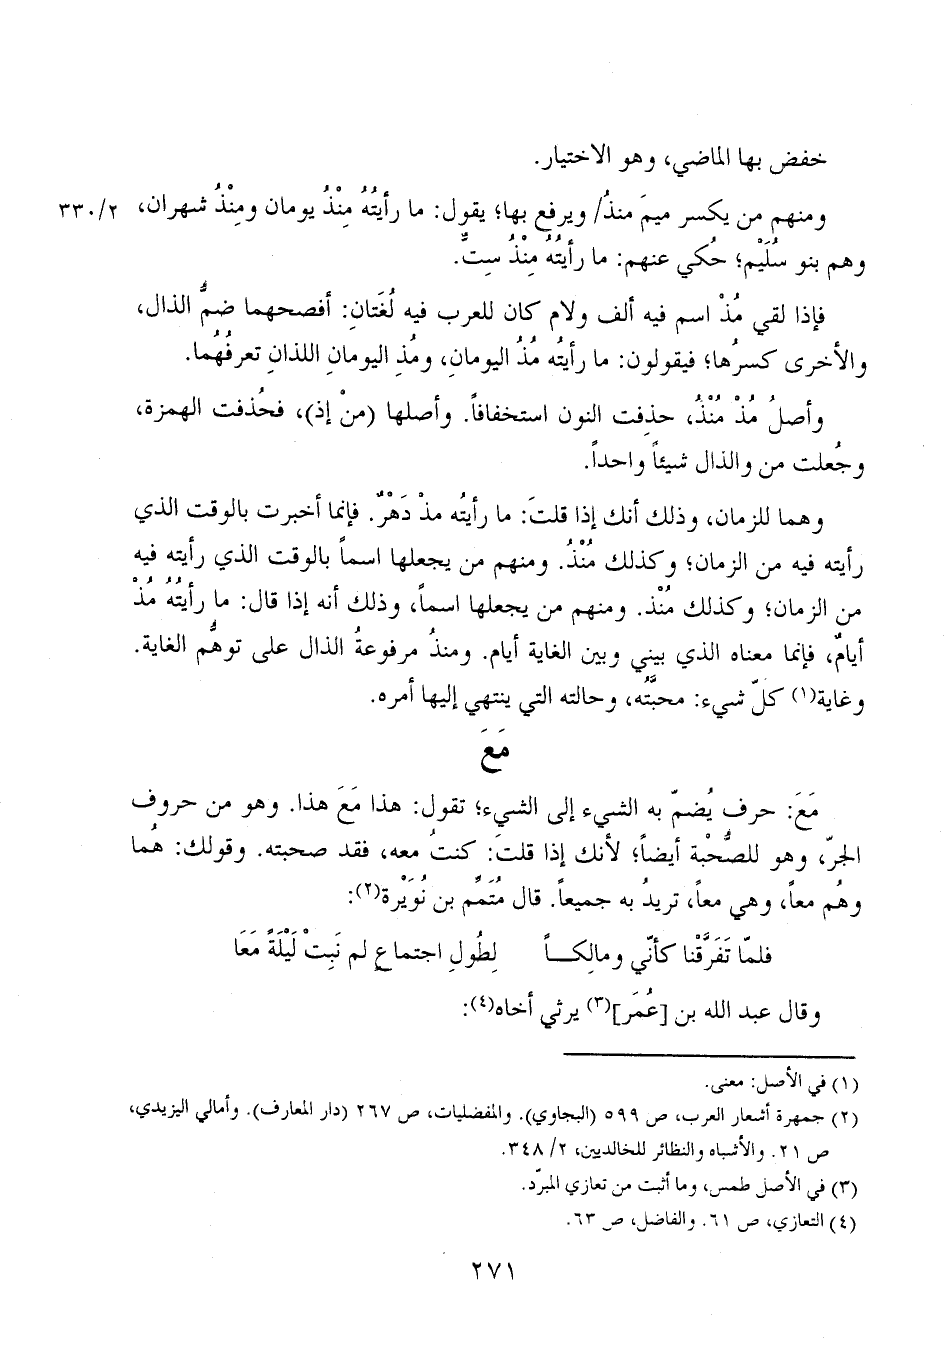 خفض بها الماضي، وهو الاختيار.
ومنهم من يكسر ميمَ منذُ/ ويرفع بها؛ يقول: ما رأيتُهُ مِنْذُ يومان ومِنْذُ شهران، ٣٣٠/٢
وهم بنو سُلَيْم؛ حُكي عنهم: ما رأيتُهُ مِنْذُ سِتٌّ.
فإذا لقي مُذْ اسم فيه ألف ولام كان للعرب فيه لُغَتَانِ: أفصحهما ضمُّ الذال،
والأخرى كسرُها؛ فيقولون: ما رأيتُه مُذُ اليومانِ، ومُذِ اليومانِ اللذانِ تعرفُهُما.
وأصلُ مُذْ مُنْذُ، حذِفت النون استخفافاً. وأصلها (منْ إذ)، فحُذفت الهمزة،
وجُعلت من والذال شيئاً واحداً.
وهما للزمان، وذلك أنك إذا قلتَ: ما رأيتُه مذْ دَهْرٌ. فإنما أخبرت بالوقت الذي
رأيته فيه من الزمان؛ وكذلك مُنْذُ. ومنهم من يجعلها اسماً بالوقت الذي رأيته فيه
من الزمان؛ وكذلك مُنْذ. ومنهم من يجعلها اسماً، وذلك أنه إذا قال: ما رأيتُهُ مُذْ
أيامٌ، فإنما معناه الذي بيني وبين الغاية أيام. ومنذُ مرفوعةُ الذال على توهُّم الغاية.
وغاية(١) كلّ شيء: محبَّتُه، وحالته التي ينتهي إليها أمره.
مَعَ
مَعَ: حرف يُضمّ به الشيء إلى الشيء؛ تقول: هذا مَعَ هذا. وهو من حروف
الجرّ، وهو للصُّحْبة أيضاً؛ لأنك إذا قلتَ: كنتُ معه، فقد صحبته. وقولك: هُما
وهُم معاً، وهي معاً، تريدُ به جميعاً. قال مُتَمِّم بن نُوَيْرة(٢):
فلمّا تَفَرَّقْنا كأنّي ومالِكــاً لِطُولِ اجتماعٍ لم نَبِتْ لَيْلَةً مَعَا
وقال عبد الله بن [عُمَر](٣) يرثي أخاه(٤):
(١) في الأصل: معنى.
(٢) جمهرة أشعار العرب، ص ٥٩٩ (البجاوي). والمفضليات، ص ٢٦٧ (دار المعارف). وأمالي اليزيدي،
ص ٢١. والأشباه والنظائر للخالديين، ٣٤٨/٢.
(٣) في الأصل طمس، وما أثبت من تعازي المبرّد.
(٤) التعازي، ص ٦١. والفاضل، ص ٦٣.
٢٧١